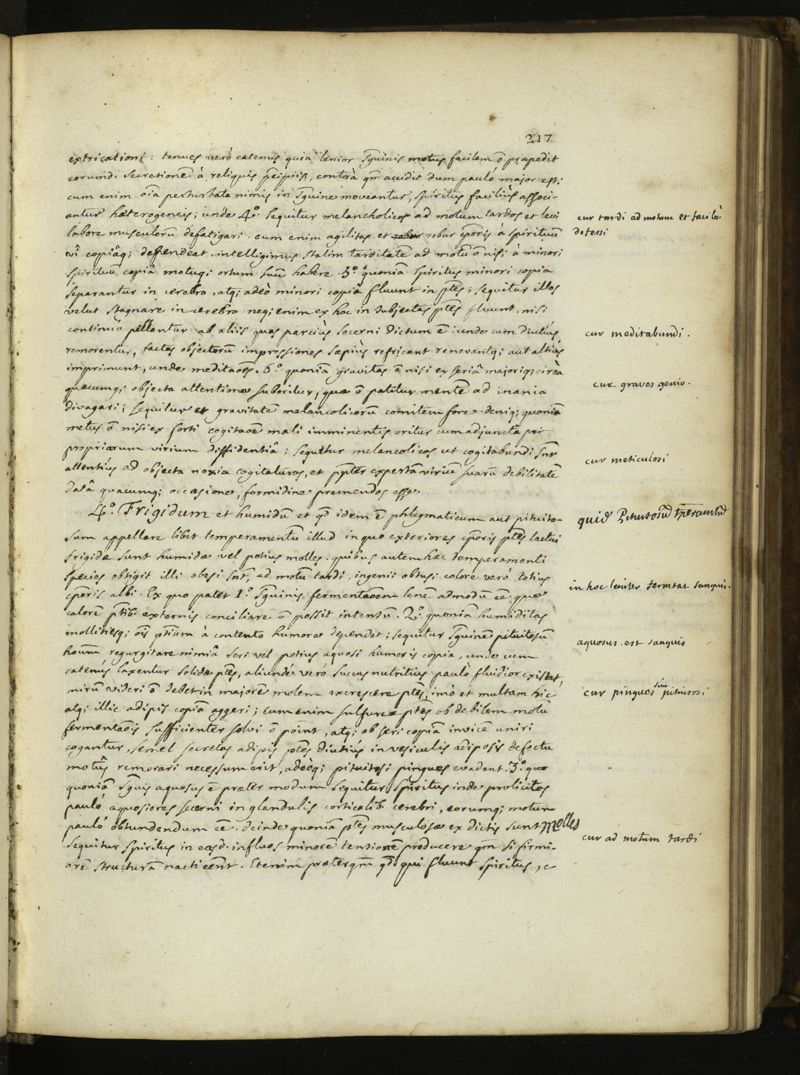 217
extricationi: tenues verò eatenus quia lenior sguinis motus facilem õ præpedit
eorumd. secretionẽ à reliquis, contrà qm̃ accidit dum paulò major est;
cum enim oĩa perturbatè nimis in sguine moveantur, spiritus faciliùs associ-
antur heterogeneis; unde 4.º sequitur melancholicos ad motum tardos et levi
labore musculorũ defatigari. cum enim agilitas et robur cporis à spirituũ
vi copiâq; dependeat, intelligimus statim tarditatẽ ad motũ õ nisi à minori
spirituũ copiâ motuq; ortum suũ habere. 5.º quoniã spiritus minori copiâ
separantur in cerebro, atq; adeò minori copiâ fluunt in ptes; sequitur illos
velut stagnare in cerebro neq; enim ex hoc in subjectas ptes fluunt, nisi
continuò pellantur ab aliis quos parciùs secerni dictum ẽ: unde cum diutiùs
remorentur, factas objectorũ impressiones sæpiùs refricant renovantq; aut altiùs
imprimunt, unde meditaões. 6.º quoniã gravitas õ nisi ex seriâ majoriq; circà
quæcumq; objecta attentione suboritur, quæ õ patitur mentẽ ad inania
divagari; sequitur et gravitatẽ melancolicorũ comitem fore. deniq; quoniã
metus õ nisi ex forti cogitaõe mali imminentis oritur cum adjunctâ pro-
propriarum virium diffidentiâ; sequitur melancolicos ut cogitabundi sũt
attentiùs ad objecta noxia cogitaturos, et ppter expertã viriũ suarũ debilitatẽ
datâ quacumq; occasione, formidine premendos esse.
4.º Frigidum et humidũ et qd idem ẽ phlegmaticum aut pituito-
sum appellare libet temperamentũ illud in quo exteriores cporis ptes tactui
frigidæ sunt humidæ vel potius molles. quibus autem hæc temperamenti
species obtigit illi obesi sũt, ad motũ tardi, ingenii obtusi, colore verò totius
cporis albi. Ex quo patet 1.º sguinis fermentaõem lenẽ admodũ ẽe quæ
calorẽ ptib. externis conciliare õ possit intensũ. 2.º quoniã humiditas
mollitiesq; à contento humore dependet; sequitur sguinẽ pituitosũ
hoũm regurgitare nimiâ seri vel potius aquosi humoris copiâ, unde cum
eatenùs laxentur solidæ ptes, aliundè verò succus nutritius paulò fluidior existat,
mirũ videri õ debet in majorẽ molem excrescere ptes, imò et multam hic
atq; illic adipis copiã aggeri; cum enim sulfureæ ptes ob debilem motũ
fermentaõis sufficienter solvi õ point, atq; ob seri copiã invicẽ uniri
cogantur, semel secretas adipis ptes diutiùs in vesiculis adiposis defectu
motũs remorari necessum erit, adeòq; pituitosi pingues evadent. 3.º
quoniã sguis aquosus ẽ præter modum sequitur spiritus inde prolicitos
paulò aquosiores secerni in glandulis corticalib. cerebri, eorumq; motum
paulò obtundendum ẽe. deinde quoniã ptes musculosæ ex dictis sunt molles
sequitur spiritus in easd. influos minorẽ tensionẽ producere qm̃ si firmi-
orẽ structurã nactì eẽnt. Etenim præterqm̃ qd qui fluunt spiritus,
cur tardi ad motum et facilè
defessi
cur meditabundi.
cur graves genio.
cur meticulosi
quid Pituitosũ tpramentũ
in hoc leniter fermtat sanguis.
aquosus est sanguis
cur pingues sint pituitosi
cur ad motum tardi